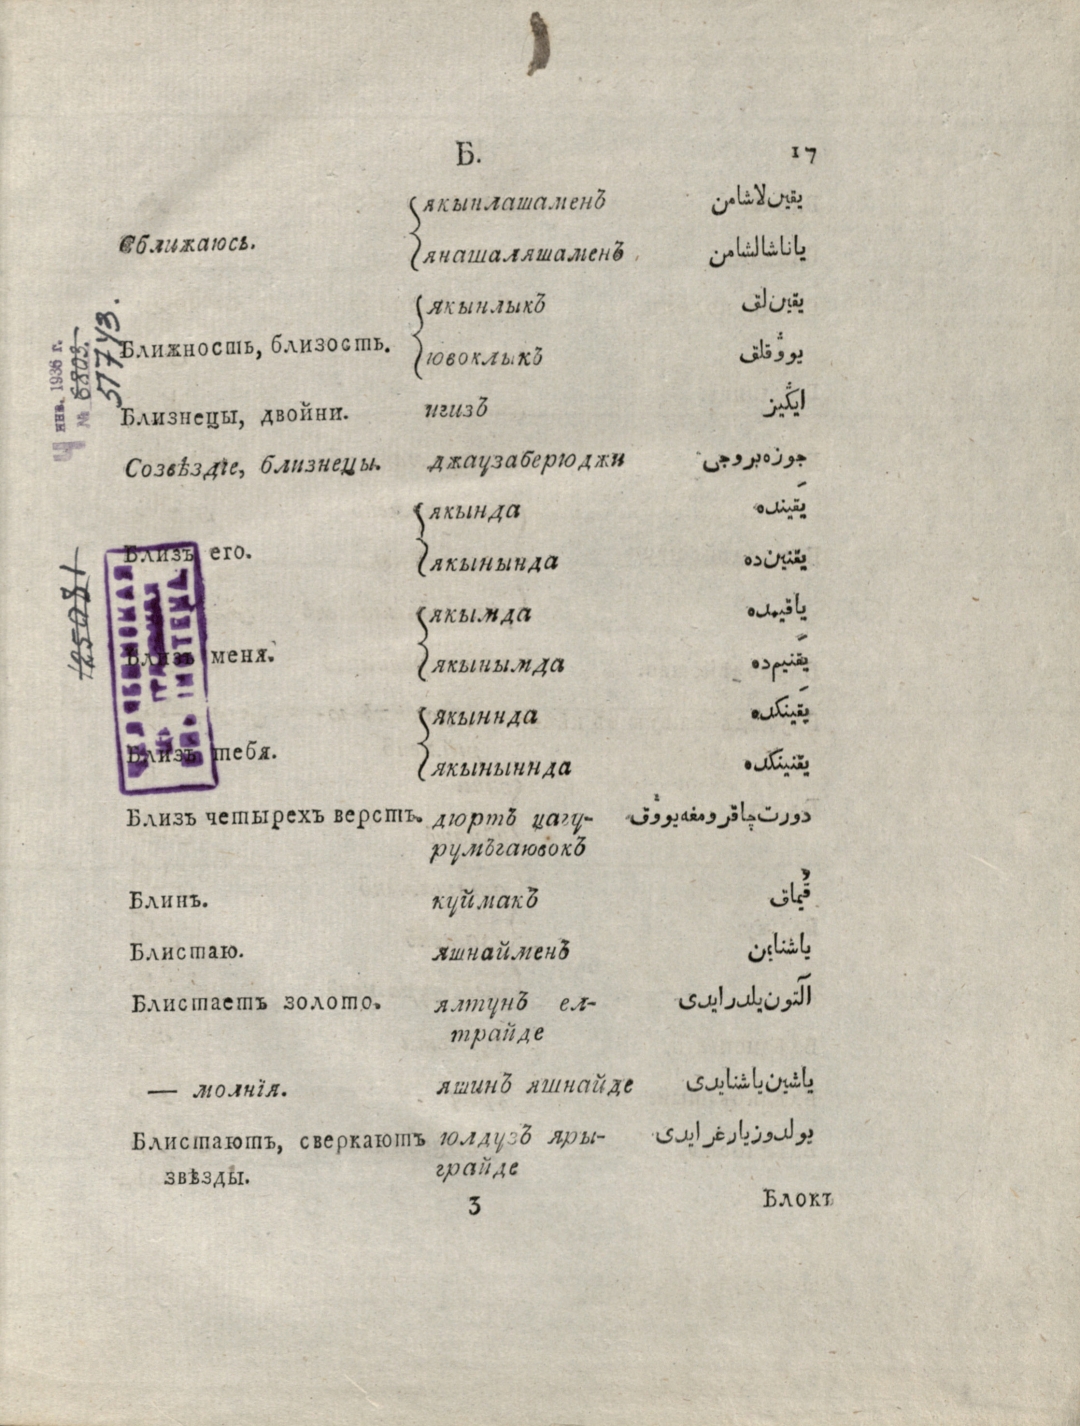 Б. 17
Сближаюсь. якынлашаменъ يقين لاشامن
янашаляшаменъ ياناشالشامن
Ближность, близость. якынлыкъ يقين لق
ювоклыкъ يووقلق
Близнецы, двойни. игизъ ايكيز
Созвѣздіе, близнецы. джаузаберюджи جوزه بروجى
Близъ его. якында يقينده
якынында يقنين ده
Близъ меня. якымда ياقيمده
якынымда يقنيم ده
Близъ тебя. якыннда يقينكده
якыныннда يقنينكده
Близъ четырехъ верстъ. дюртъ цагу- دورت چاقرومغه يووق
румъгаювокъ
Блинъ. куймакъ قيماق
Блистаю. яшнайменъ
Блистаетъ золото. ялтунъ ел- آلتون يلدرايدى
трайде
— молнія. яшинъ яшнайде ياشين ياشنايدى
Блистаютъ, сверкаютъ юлдузъ яры- يولدوز يارغرايدى
звѣзды. грайде
3 Блокъ
4 янв. 1936 г.
№ 6803
57743.
125081